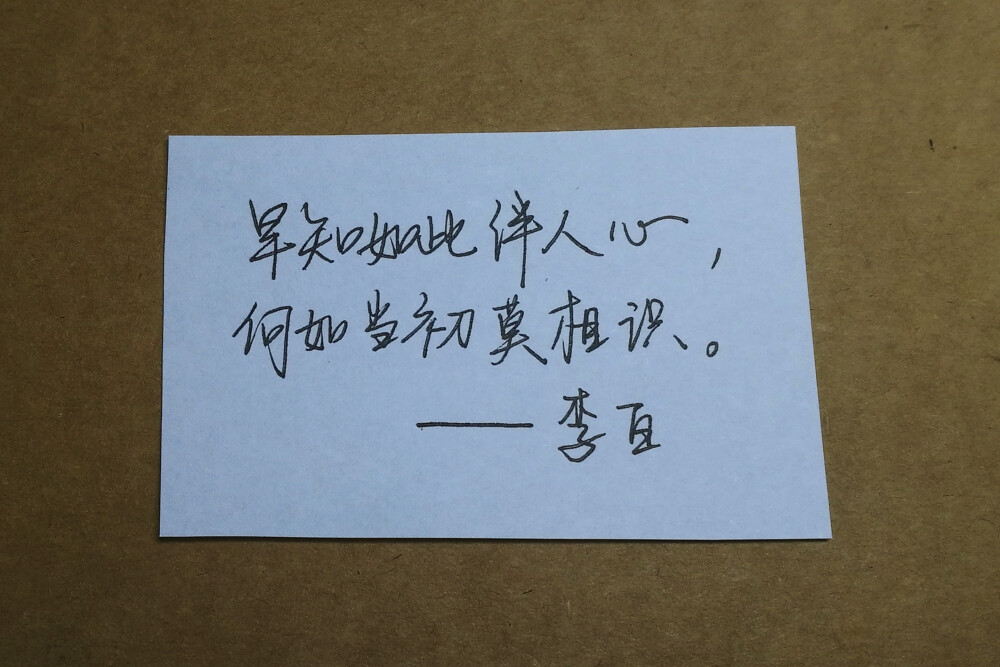 早知如此绊人心，
何如当初莫相识。
——李白